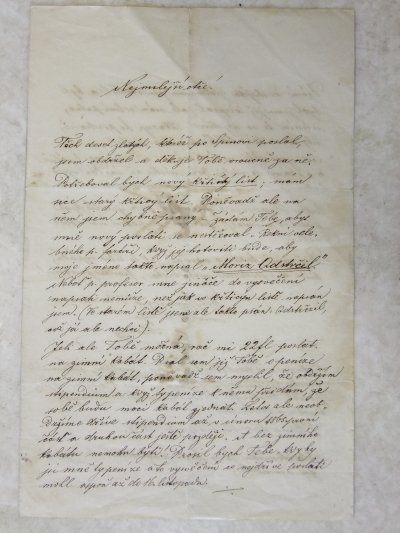 Nejmilejší otče!
Těch deset zlatých, které po Spinovi poslal,
jsem obdržel a děkuji Tobě srdečně za ně.
Potřeboval bych nový křticý list; mám
sice starý křticý list. Poněvadž ale na
něm jsem chybně psaný žádám Tebe, abys
mně nový poslati se
p. faráři, když jej hotoviti bude, aby
moje jméno takto napsal „Moriz Odstrčil."
Neboť p. professor mne jináče do vysvěčení
napsati nemůže, než jak v křticým listě napsán
jsem. (Ve starém listě jsem ale takto psán Odstrčil,
což já ale nechci).
Jak ale Tobě možná, rač mi 22 fl. poslat
na zimní kabát. Psal sem již Tobě o peníze
na zimní kabát, poněvadž sem myslil, že obdržím
stipendium a když ty peníze k němu přidám, že
sobě budu moci kabát zjednati. Leta ale neob-
držíme dříve stipendium až v únoru 1865 první
část a druhou část ještě později, a bez zimního
kabátu nemohu býti! Prosil bych Tebe, kdyby
jsi mně ty peníze a to vysvěčení co nejdříve poslati
mohl aspoň až do 16. listopadu.